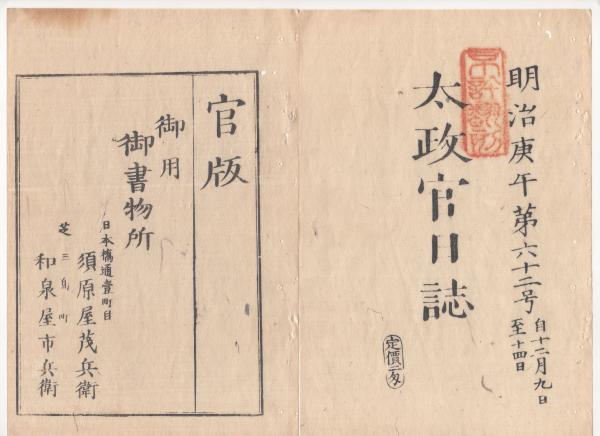 明治庚午第六十二号
自十二月九日
至十四日
太政官日誌
不許翻刻
官版
御用
御書物所
日本橋通壹町目
須原屋茂兵衛
芝三島町
和泉屋市兵衛